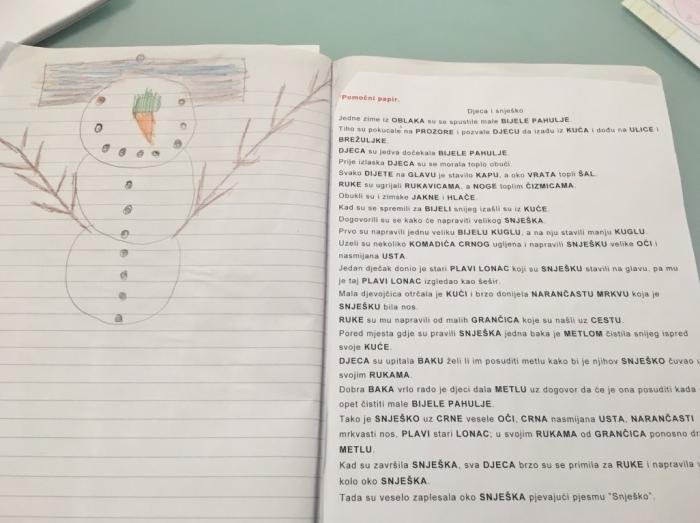 Pomoćni papir.
Djeca i snješko
Jedne zime iz OBLAKA su se spustile male BIJELE PAHULJE.
Tiho su pokucale na PROZORE i pozvale DJECU da izađu iz KUĆA i dođu na ULICE i
BREŽULJKE.
DJECA su jedva dočekala BIJELE PAHULJE.
Prije izlaska DJECA su se morala toplo obući.
Svako DIJETE na GLAVU je stavilo KAPU, a oko VRATA topli ŠAL.
RUKE su ugrijali RUKAVICAMA, a NOGE toplim ČIZMICAMA.
Obukli su i zimske JAKNE i HLAČE.
Kad su se spremili za BIJELI snijeg izašli su iz KUĆE.
Dogovorili su se kako će napraviti velikog SNJEŠKA.
Prvo su napravili jednu veliku BIJELU KUGLU, a na nju stavili manju KUGLU.
Uzeli su nekoliko KOMADIĆA CRNOG ugljena i napravili SNJEŠKU velike OČI i
nasmijana USTA.
Jedan dječak donio je stari PLAVI LONAC koji su SNJEŠKU stavili na glavu, pa mu
je taj PLAVI LONAC izgledao kao šešir.
Mala djevojčica otrčala je KUĆI i brzo donijela NARANČASTU MRKVU koja je
SNJEŠKU bila nos.
RUKE su mu napravili od malih GRANČICA koje su našli uz CESTU.
Pored mjesta gdje su pravili SNJEŠKA jedna baka je METLOM čistila snijeg ispred
svoje KUĆE.
DJECA su upitala BAKU želi li im posuditi metlu kako bi je njihov SNJEŠKO čuvao u
svojim RUKAMA.
Dobra BAKA vrlo rado je djeci dala METLU uz dogovor da će je ona posuditi kada
opet čistiti male BIJELE PAHULJE.
Tako je SNJEŠKO uz CRNE vesele OČI, CRNA nasmijana USTA, NARANČASTI
mrkvasti nos, PLAVI stari LONAC; u svojim RUKAMA od GRANČICA ponosno
METLU.
Kad su završila SNJEŠKA, sva DJECA brzo su se primila za RUKE i napravila
kolo oko SNJEŠKA.
Tada su veselo zaplesala oko SNJEŠKA pjevajući pjesmu "Snješko".